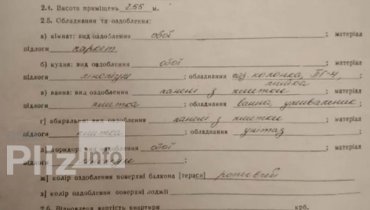 2.4. Висота приміщень 2.55 м.
2.5. Обладнання та оздоблення:
а) кімнат: вид оздоблення обої ; матеріал
підлоги паркет
б) кухня: вид оздоблення обої ; матеріал
підлоги лінолеум ; обладнання газ. колонка, ПГ-4, плитка
в) ванна: вид оздоблення панелі з плитки ; матеріал
підлоги плитка ; обладнання ванна, умивальник ;
г) вбиральня: вид оздоблення панелі з плитки ; матеріал
підлоги плитка ; обладнання унітаз
коридор: вид оздоблення обої ; матеріал
ж) колір оздоблення поверхні балкона [тераси]
з) колір оздоблення поверхні лоджії
вартість квартири крб.
Pliz info